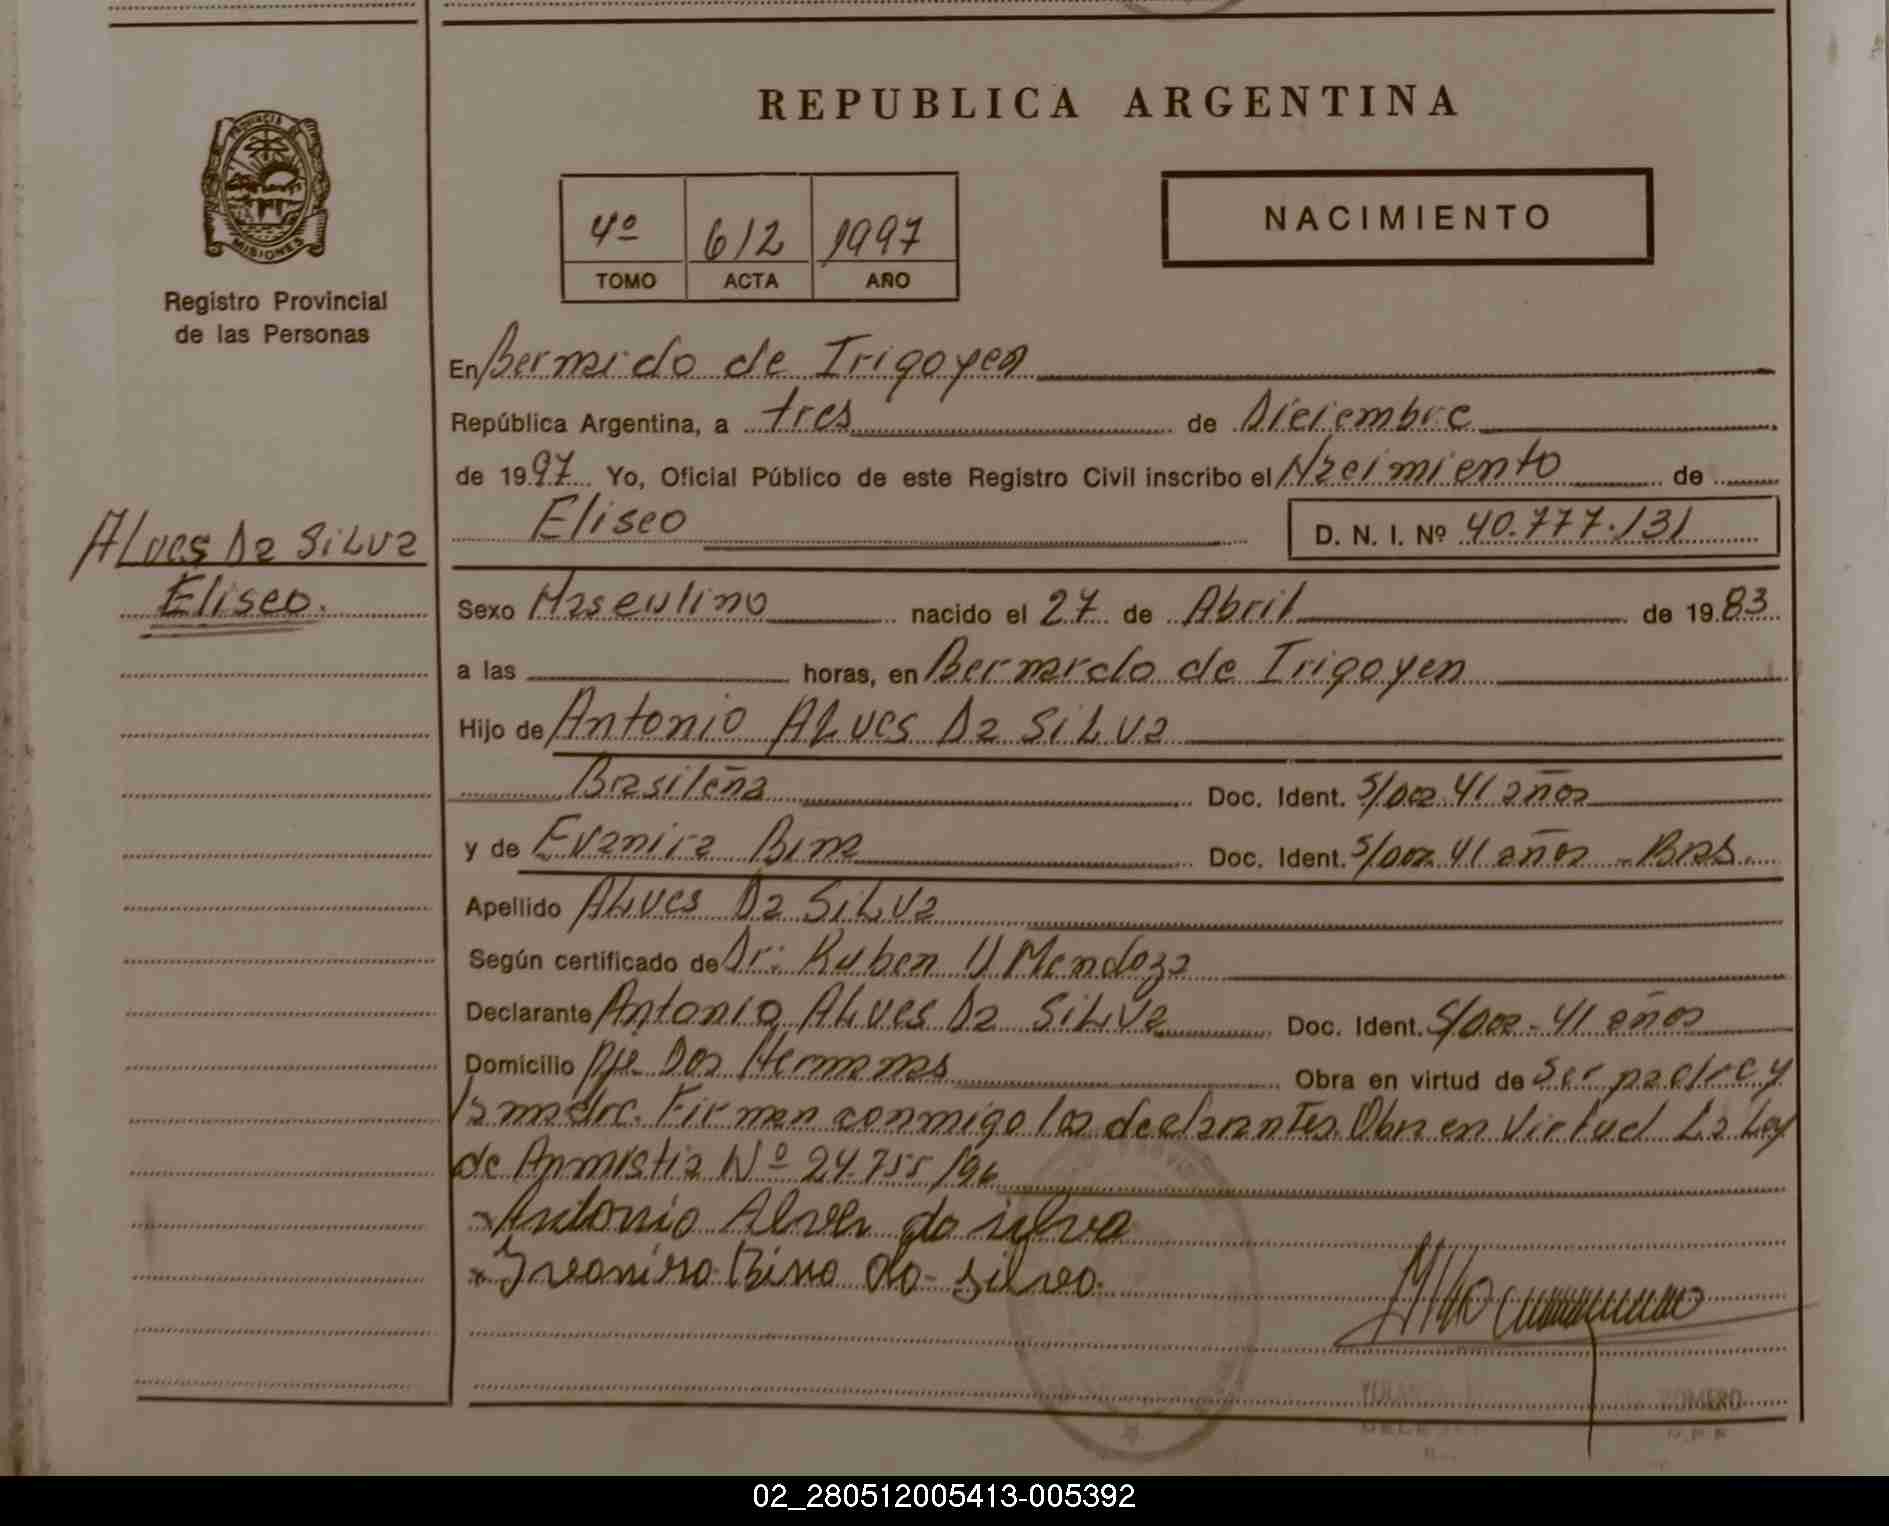 REPUBLICA ARGENTINA
PROVINCIA DE
MISIONES
Registro Provincial
de las Personas
4º 612 1997
TOMO ACTA AÑO
NACIMIENTO
En Bernardo de Irigoyen
República Argentina, a tres de Diciembre
de 1997 Yo, Oficial Público de este Registro Civil inscribo el Nacimiento de
Eliseo D. N. I. Nº 40.777.131
ALves Da SiLva
Eliseo.
Sexo Masculino nacido el 27 de Abril de 1983
a las horas, en Bernardo de Irigoyen
Hijo de Antonio ALves Da SiLva
Brasileña Doc. Ident. S/Doc 41 años
y de Doc. Ident. S/Doc 41 años - Bras.
Apellido ALves Da SiLva
Según certificado de Dr. Ruben Mendoza
Declarante Antonio ALves Da SiLva Doc. Ident. S/Doc - 41 años
Domicilio Pje Dos Hermanas Obra en virtud de Ser padre y
la madre. Firman conmigo los declarantes. Obra en Virtud La Ley
de Anmistia Nº 24.755/96
Antonio Alves da silva
da silva
ROMERO
02_280512005413-005392